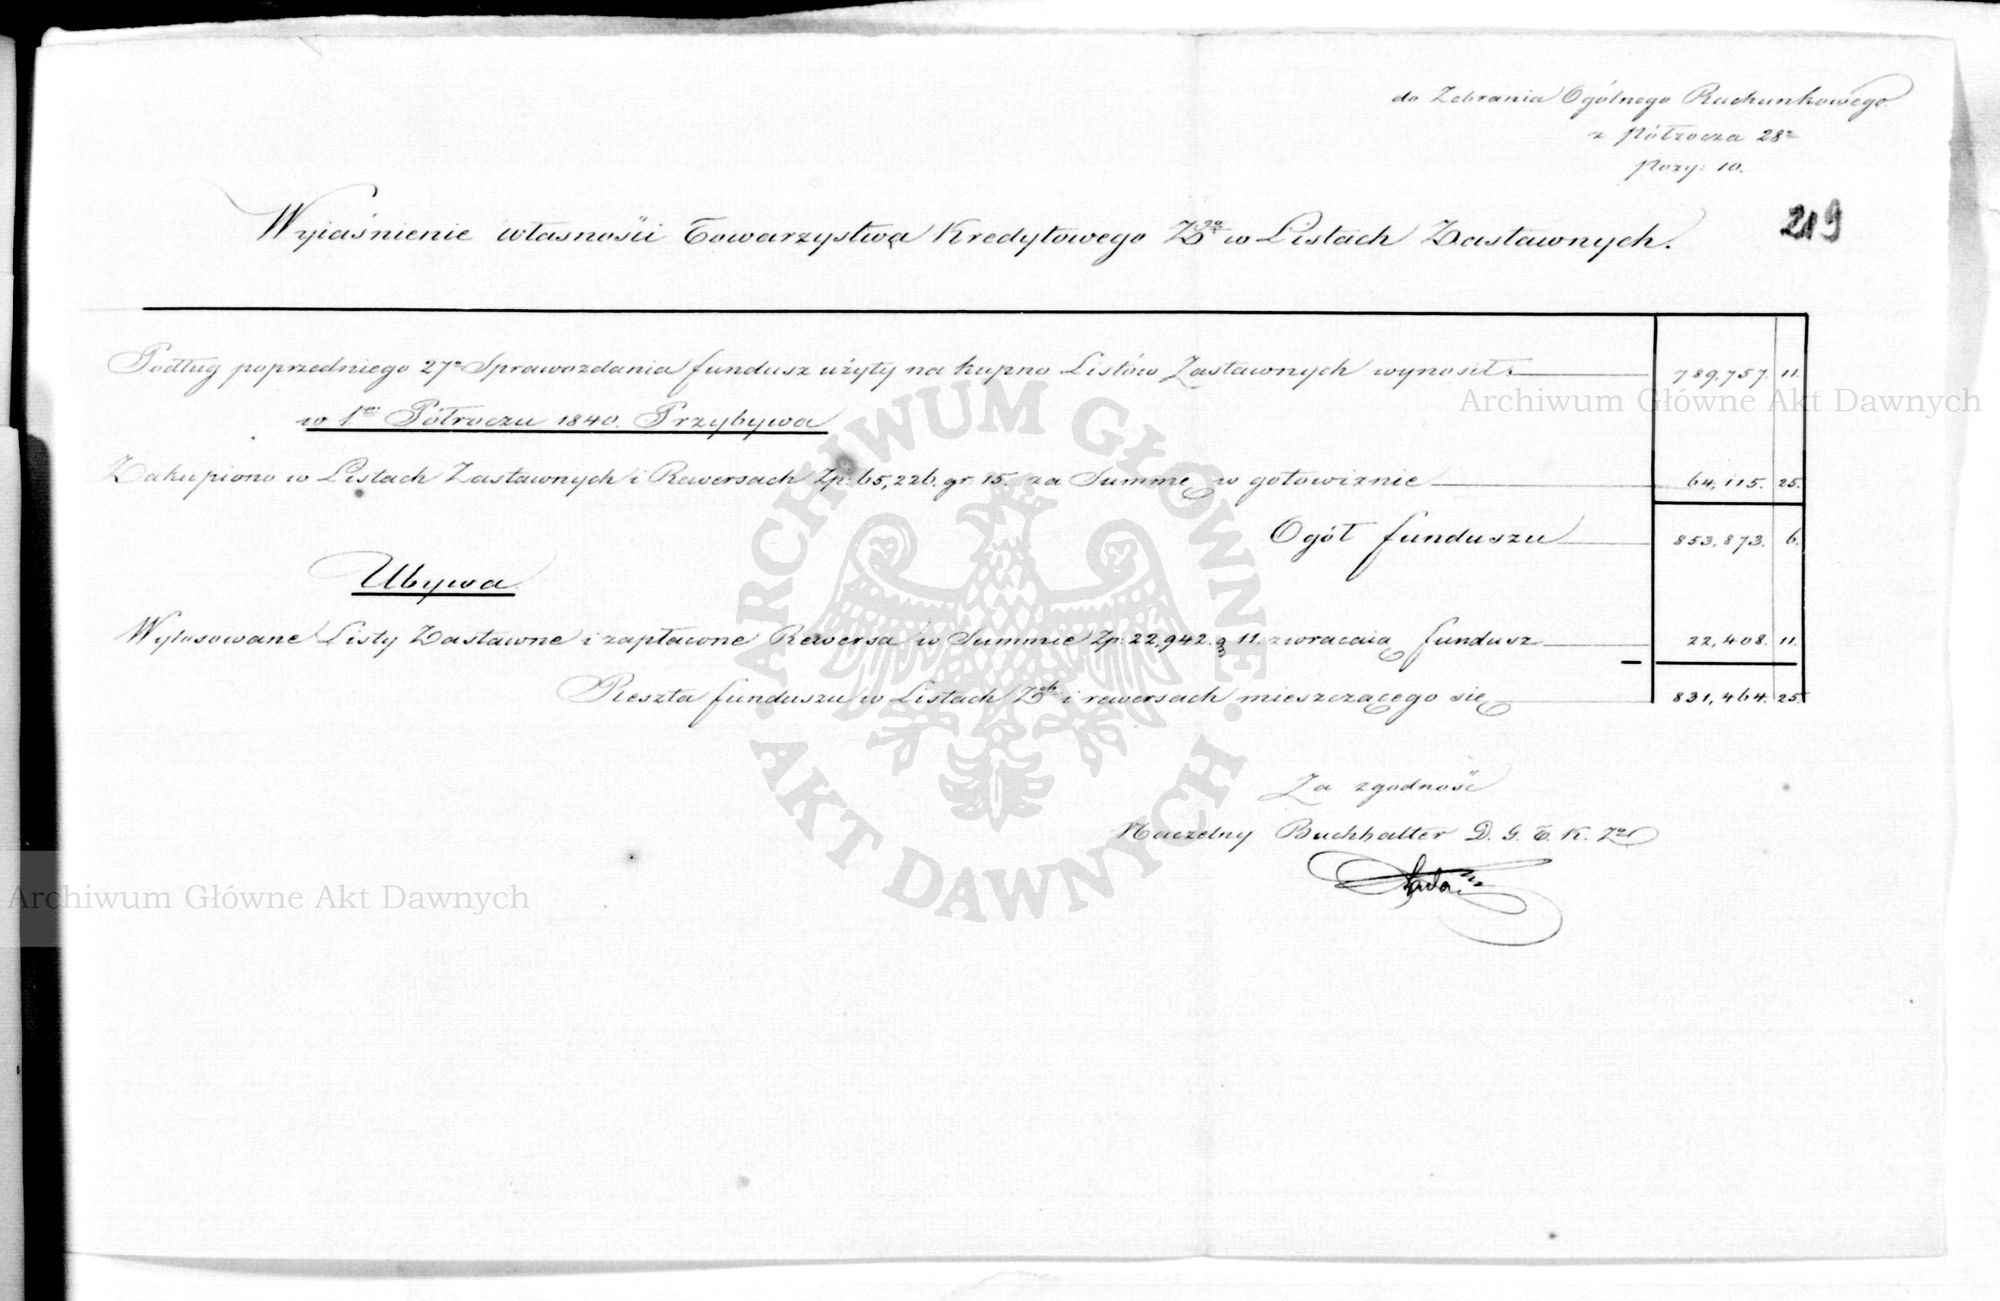 do Zebrania Ogólnego Rachunkowego
z Półrocza 28º
Pozy: 10.
219
Wyiaśnienie własności Towarzystwa Kredytowego Zgo w Listach Zastawnych.
Podług poprzedniego 27º Sprawozdania fundusz użyty na kupno Listów Zastawnych wynosił 789,757. 11.
w 1m Półroczu 1840. Przybywa
Zakupiono w Listach Zastawnych i Rewersach Zp: 65,226. gr. 15. za Summę w gotowiznie 64,115. 25.
Ogół funduszu 853,873. 6.
Ubywa
Wylosowane Listy Zastawne i zapłacone Rewersa w Summie Zp. 22,942. g 11. zwracaią fundusz 22,408. 11.
Reszta funduszu w Listach Zch i rewersach mieszczącego się 831,464. 25.
Za zgodność
Naczelny Buchhalter D. G. T. K. Zo
Archiwum Główne Akt Dawnych
Archiwum Główne Akt Dawnych
ARCHIWUM GŁÓWNE AKT DAWNYCH